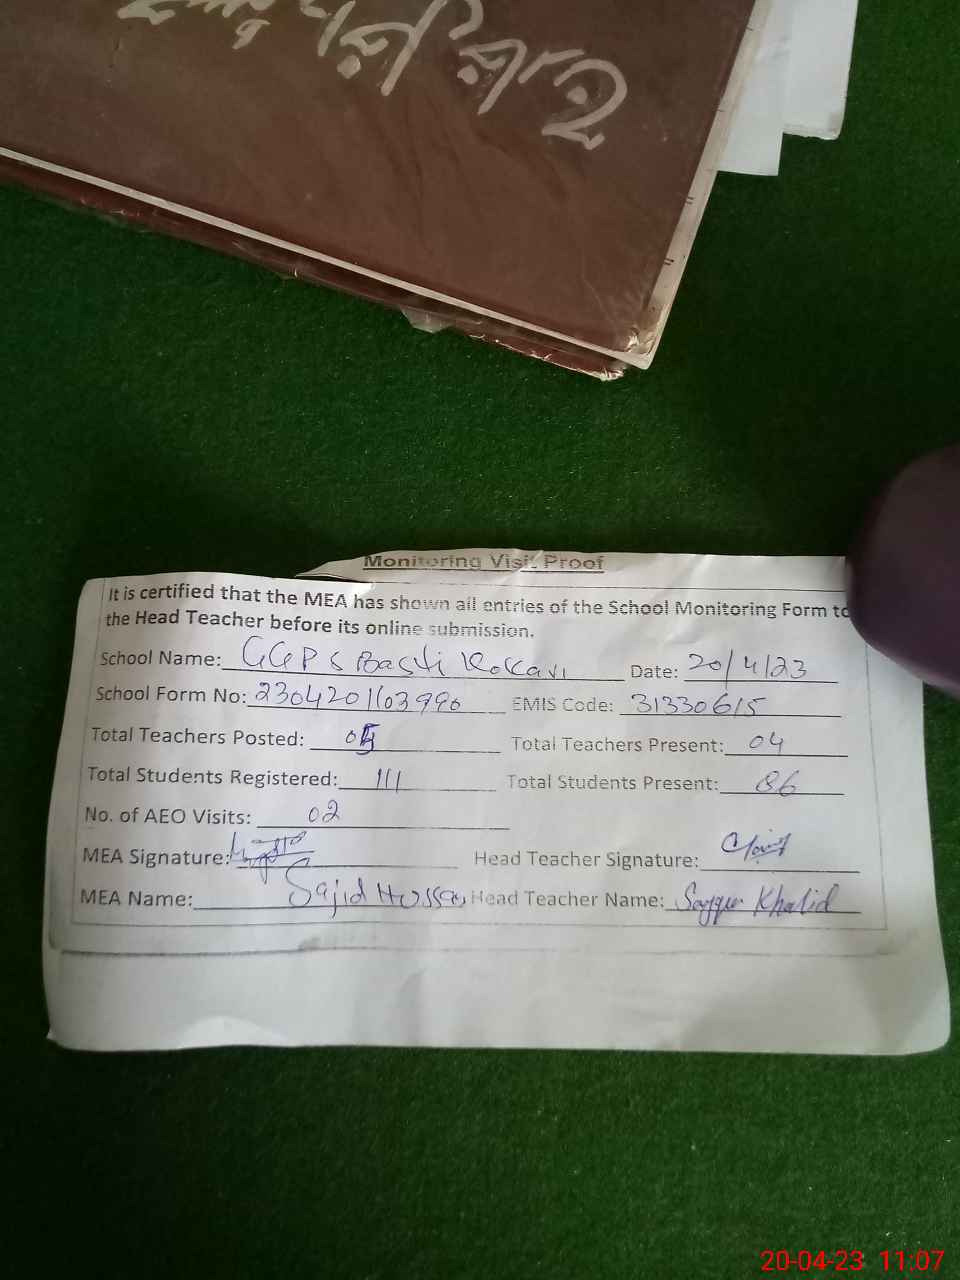 Monitoring Visit Proof
It is certified that the MEA has shown all entries of the School Monitoring Form to
the Head Teacher before its online submission.
School Name: GGPS Basti Kokari Date: 20/4/23
School Form No: 2304201103990 EMIS Code: 31330615
Total Teachers Posted: 05 Total Teachers Present: 04
Total Students Registered: 111 Total Students Present: 86
No. of AEO Visits: 02
MEA Signature: Head Teacher Signature:
MEA Name: Sajid Hussain Head Teacher Name: Khalid
20-04-23 11:07